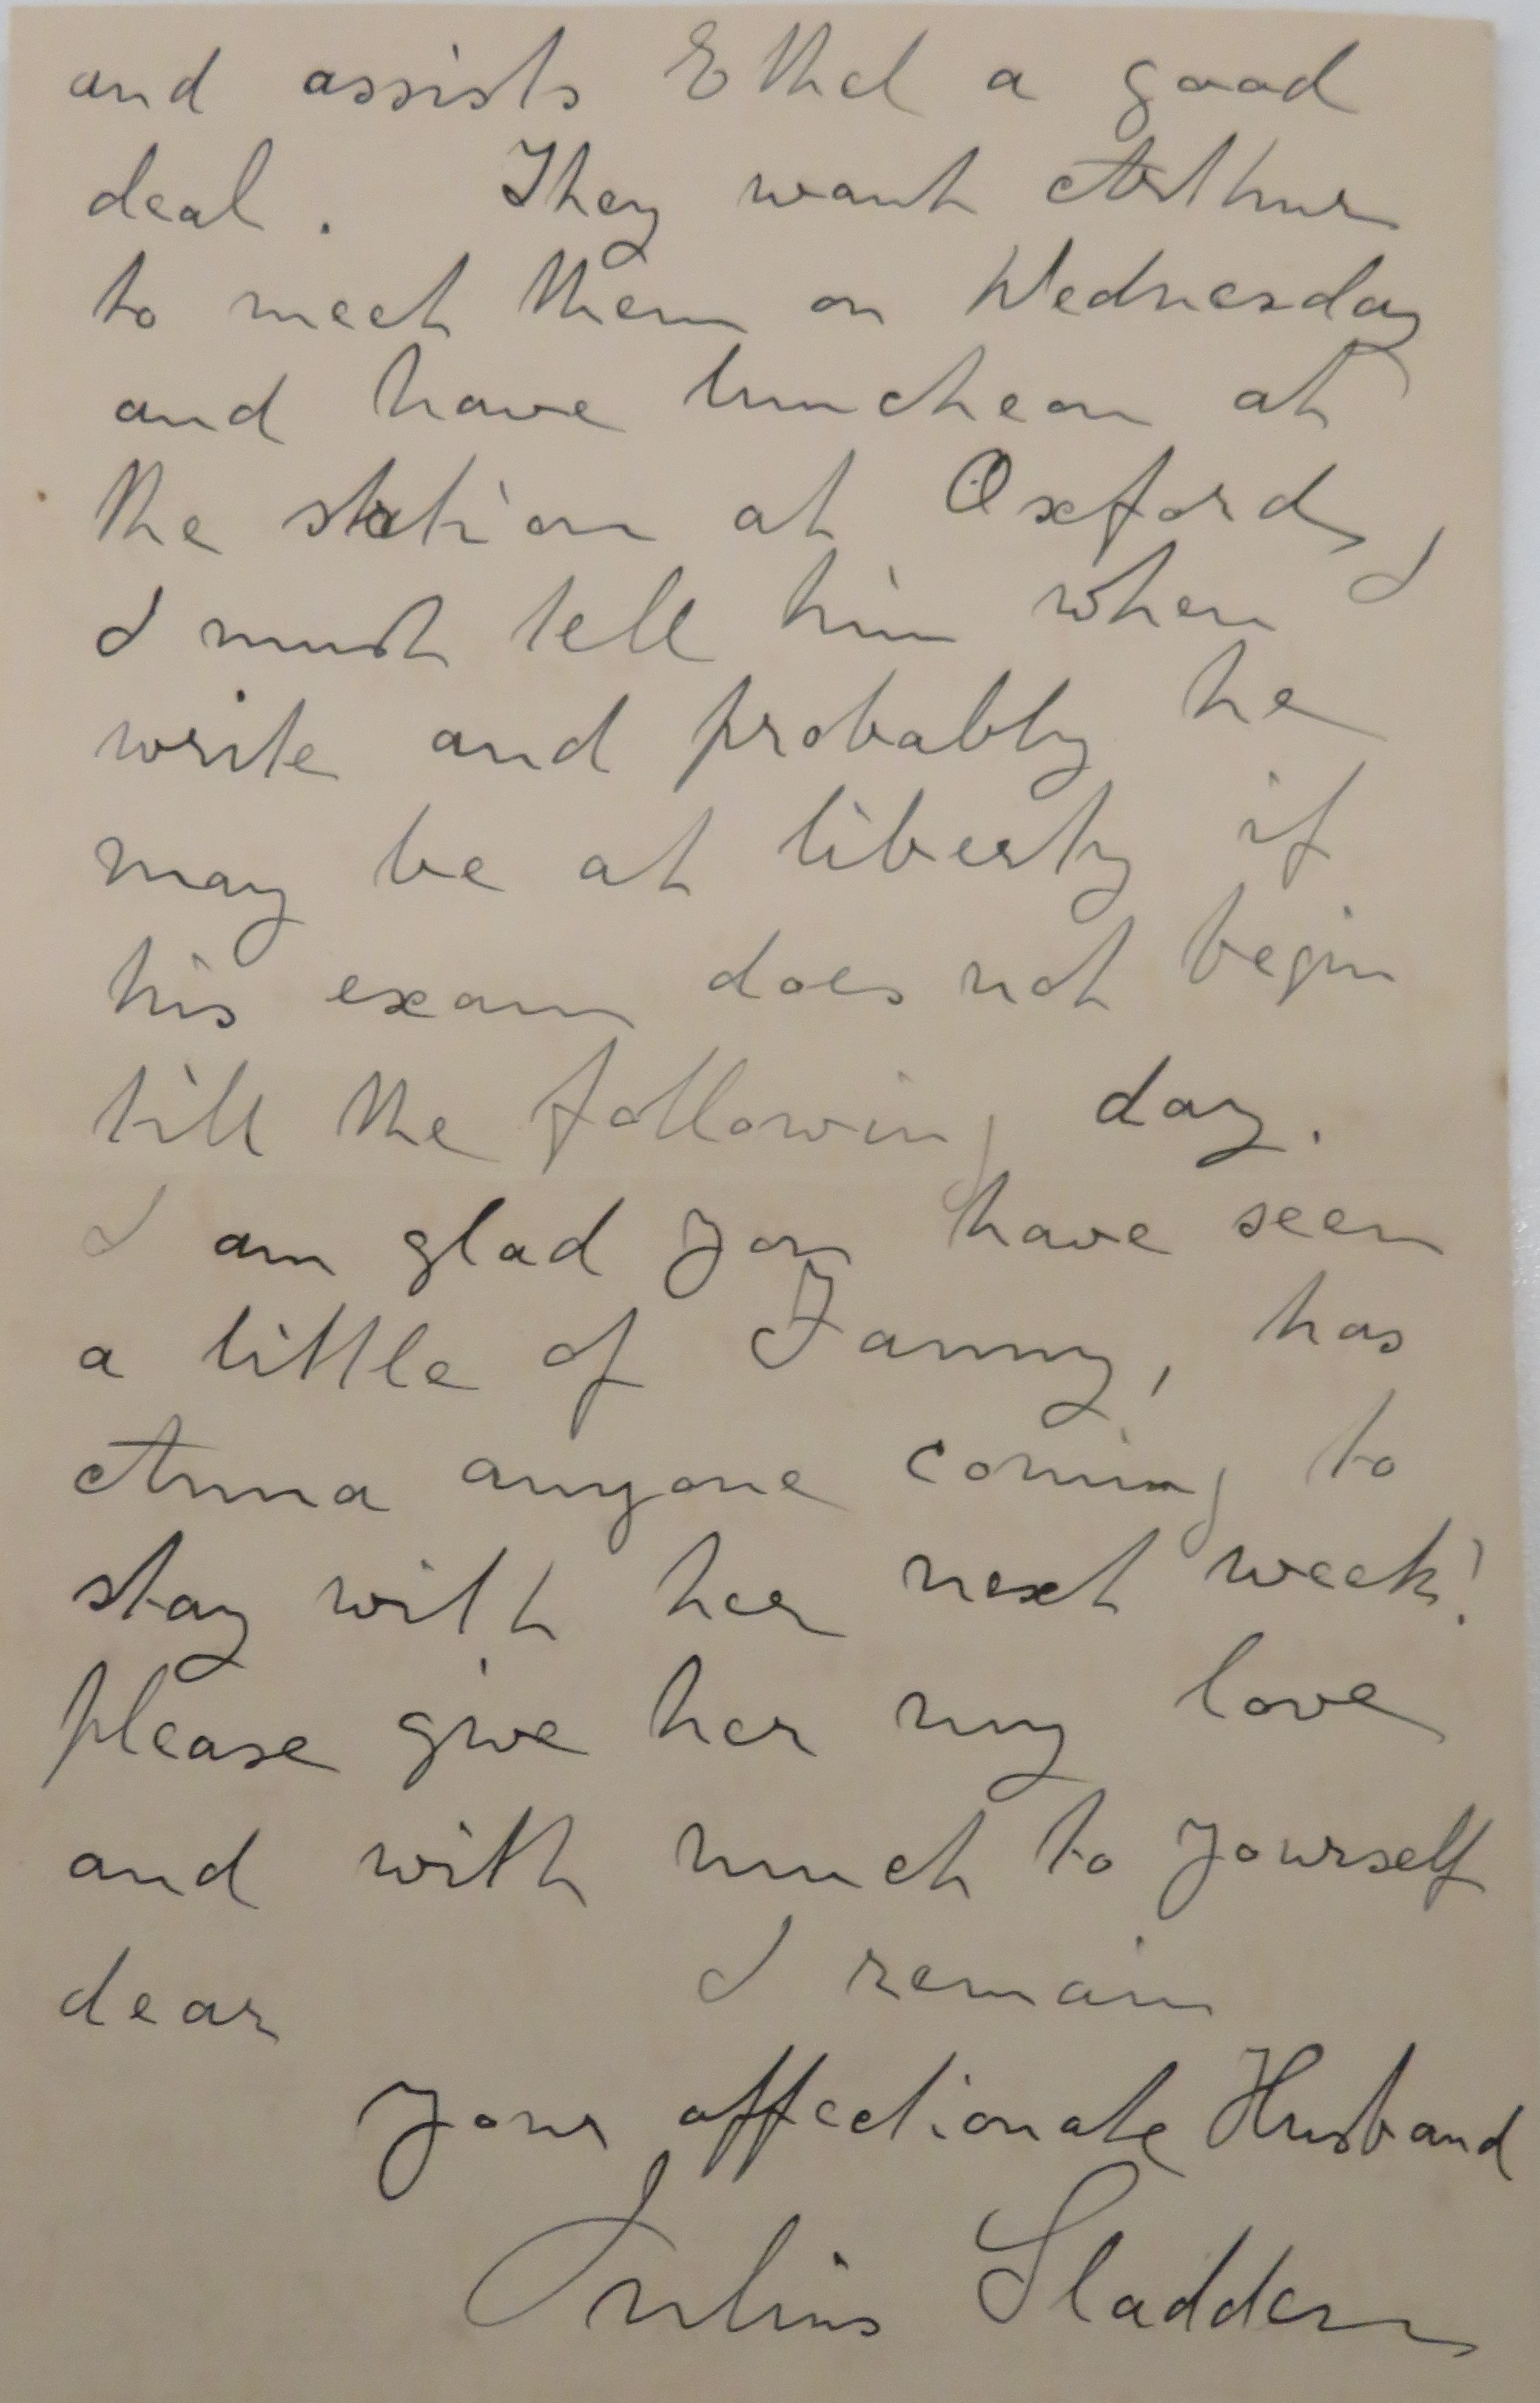 and assists Ethel a good
deal. They want Arthur
to meet them on Wednesday
and have luncheon at
the station at Oxford,
I must tell him when I
write and probably he
may be at liberty if
his exam does not begin
till the following day.
I am glad you have seen
a little of Fanny, has
Anna anyone coming to
stay with her next week?
please give her my love
and with much to yourself
dear I remain
Your affectionate Husband
Julius Sladden